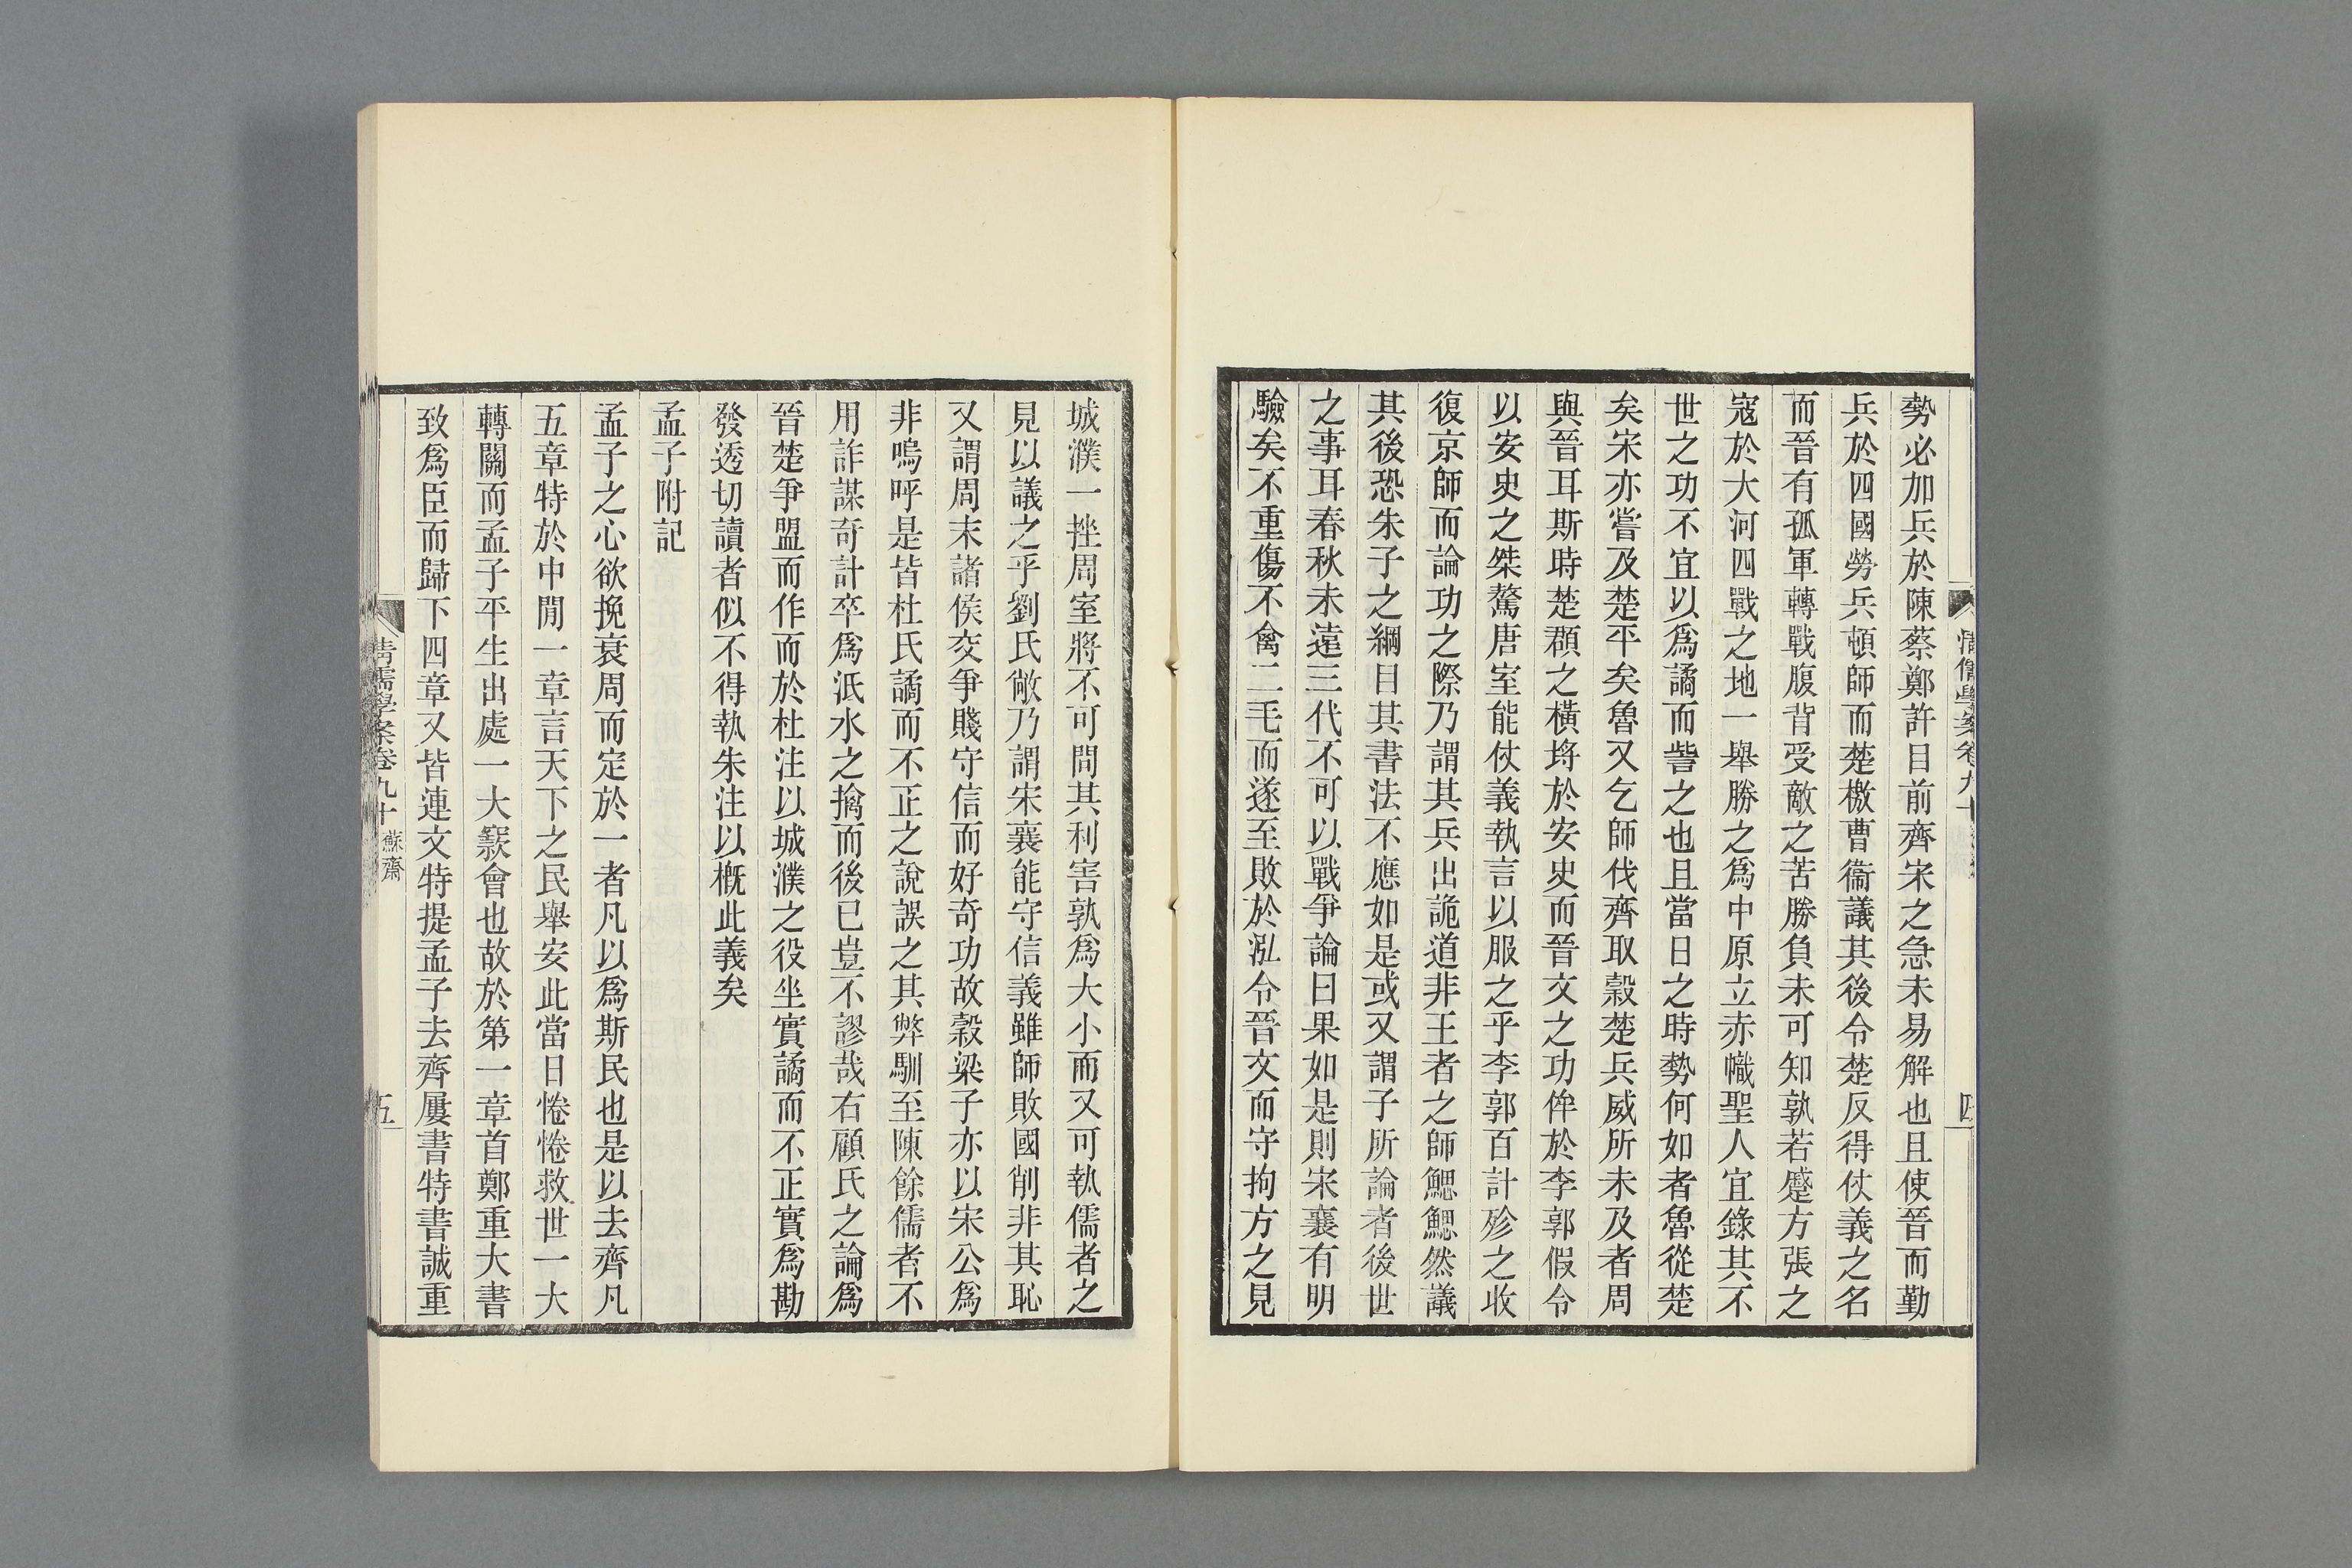 勢必加兵於陳蔡鄭許目前齊宋之急未易解也且使晉而勤
兵於四國勞兵頓師而楚檄曹衞議其後令楚反得仗義之名
而晉有孤軍轉戰腹背受敵之苦勝負未可知孰若蹙方張之
寇於大河四戰之地一舉勝之爲中原立赤幟聖人宜錄其不
世之功不宜以爲譎而訾之也且當日之時勢何如者魯從楚
矣宋亦嘗及楚平矣魯又乞師伐齊取穀楚兵威所未及者周
與晉耳斯時楚頵之橫埒於安史而晉文之功侔於李郭假令
以安史之桀驁唐室能仗義執言以服之乎李郭百計殄之收
復京師而論功之際乃謂其兵出詭道非王者之師鰓鰓然議
其後恐朱子之綱目其書法不應如是或又謂子所論者後世
之事耳春秋未遠三代不可以戰爭論曰果如是則宋襄有明
驗矣不重傷不禽二毛而遂至敗於泓令晉文而守拘方之見
城濮一挫周室將不可問其利害孰爲大小而又可執儒者之
見以議之乎劉氏敞乃謂宋襄能守信義雖師敗國削非其恥
又謂周末諸侯交爭賤守信而好奇功故穀梁子亦以宋公爲
非嗚呼是皆杜氏譎而不正之說誤之其弊馴至陳餘儒者不
用詐謀奇計卒爲泜水之擒而後已豈不謬哉右顧氏之論爲
晉楚爭盟而作而於杜注以城濮之役坐實譎而不正實爲勘
發透切讀者似不得執朱注以槪此義矣
孟子附記
孟子之心欲挽衰周而定於一者凡以爲斯民也是以去齊凡
五章特於中閒一章言天下之民舉安此當日惓惓救世一大
轉關而孟子平生出處一大窾會也故於第一章首鄭重大書
致爲臣而歸下四章又皆連文特提孟子去齊屢書特書誠重
清儒學案卷九十 蘇齋
五